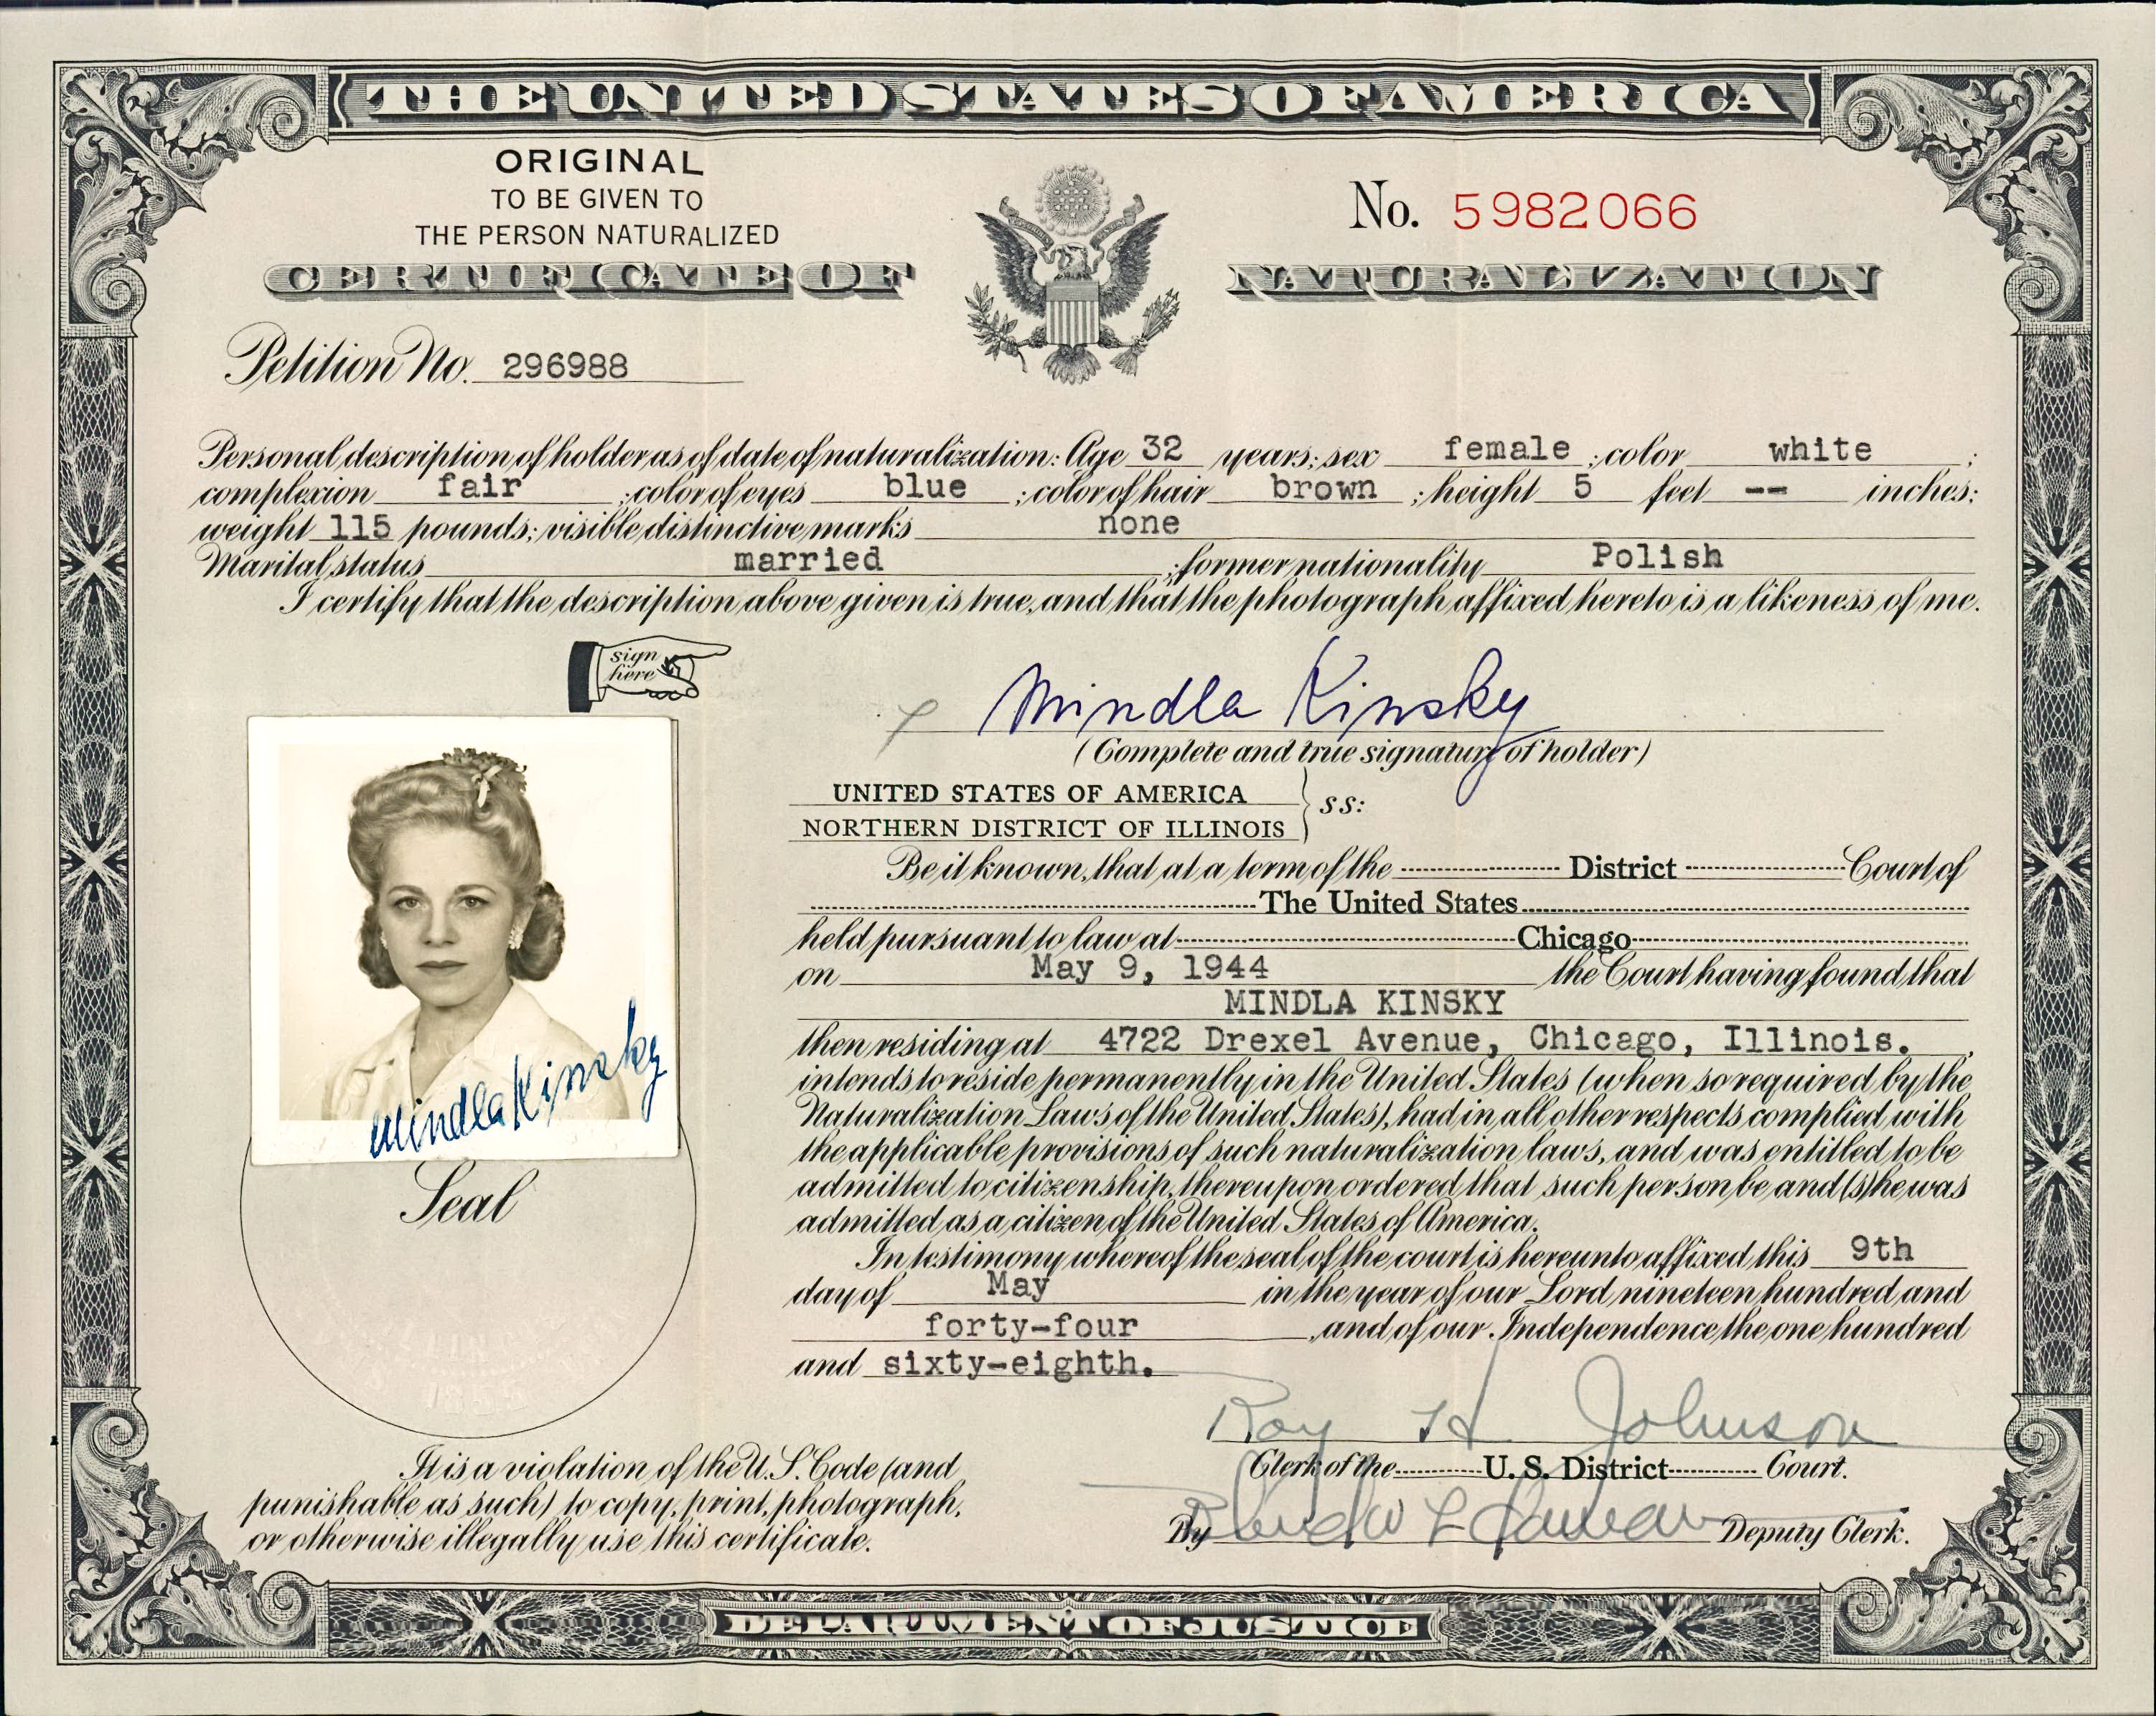 THE UNITED STATES OF AMERICA
ORIGINAL
TO BE GIVEN TO
THE PERSON NATURALIZED
No. 5982066
CERTIFICATE OF NATURALIZATION
Petition No. 296988
Personal description of holder as of date of naturalization: Age 32 years; sex female; color white;
complexion fair; color of eyes blue; color of hair brown; height 5 feet -- inches;
weight 115 pounds; visible distinctive marks none
Marital status married; former nationality Polish
I certify that the description above given is true, and that the photograph affixed hereto is a likeness of me.
sign
here
Mindla Kinsky
(Complete and true signature of holder)
UNITED STATES OF AMERICA
NORTHERN DISTRICT OF ILLINOIS
ss:
Be it known, that at a term of the District Court of
The United States
held pursuant to law at Chicago
on May 9, 1944 the Court having found that
MINDLA KINSKY
then residing at 4722 Drexel Avenue, Chicago, Illinois.,
intends to reside permanently in the United States (when so required by the
Naturalization Laws of the United States), had in all other respects complied with
the applicable provisions of such naturalization laws, and was entitled to be
admitted to citizenship, thereupon ordered that such person be and (s)he was
admitted as a citizen of the United States of America.
In testimony whereof the seal of the court is hereunto affixed this 9th
day of May in the year of our Lord nineteen hundred and
forty-four, and of our Independence the one hundred
and sixty-eighth.
Mindla Kinsky
Seal
Roy H Johnson
Clerk of the U. S. District Court.
By Deputy Clerk.
It is a violation of the U. S. Code (and
punishable as such) to copy, print, photograph,
or otherwise illegally use this certificate.
DEPARTMENT OF JUSTICE